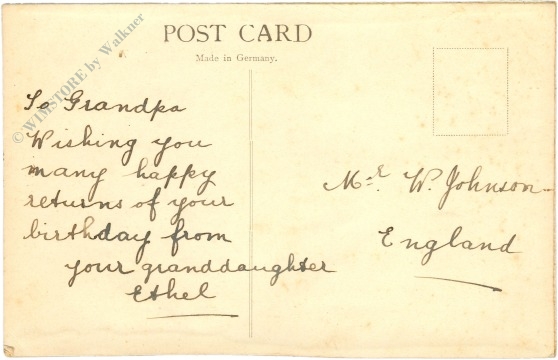 POST CARD
Made in Germany.
© WIMSTORE by Walkner
To Grandpa
Wishing you
many happy
returns of your
birthday from
your granddaughter
Ethel
Mr W. Johnson
England